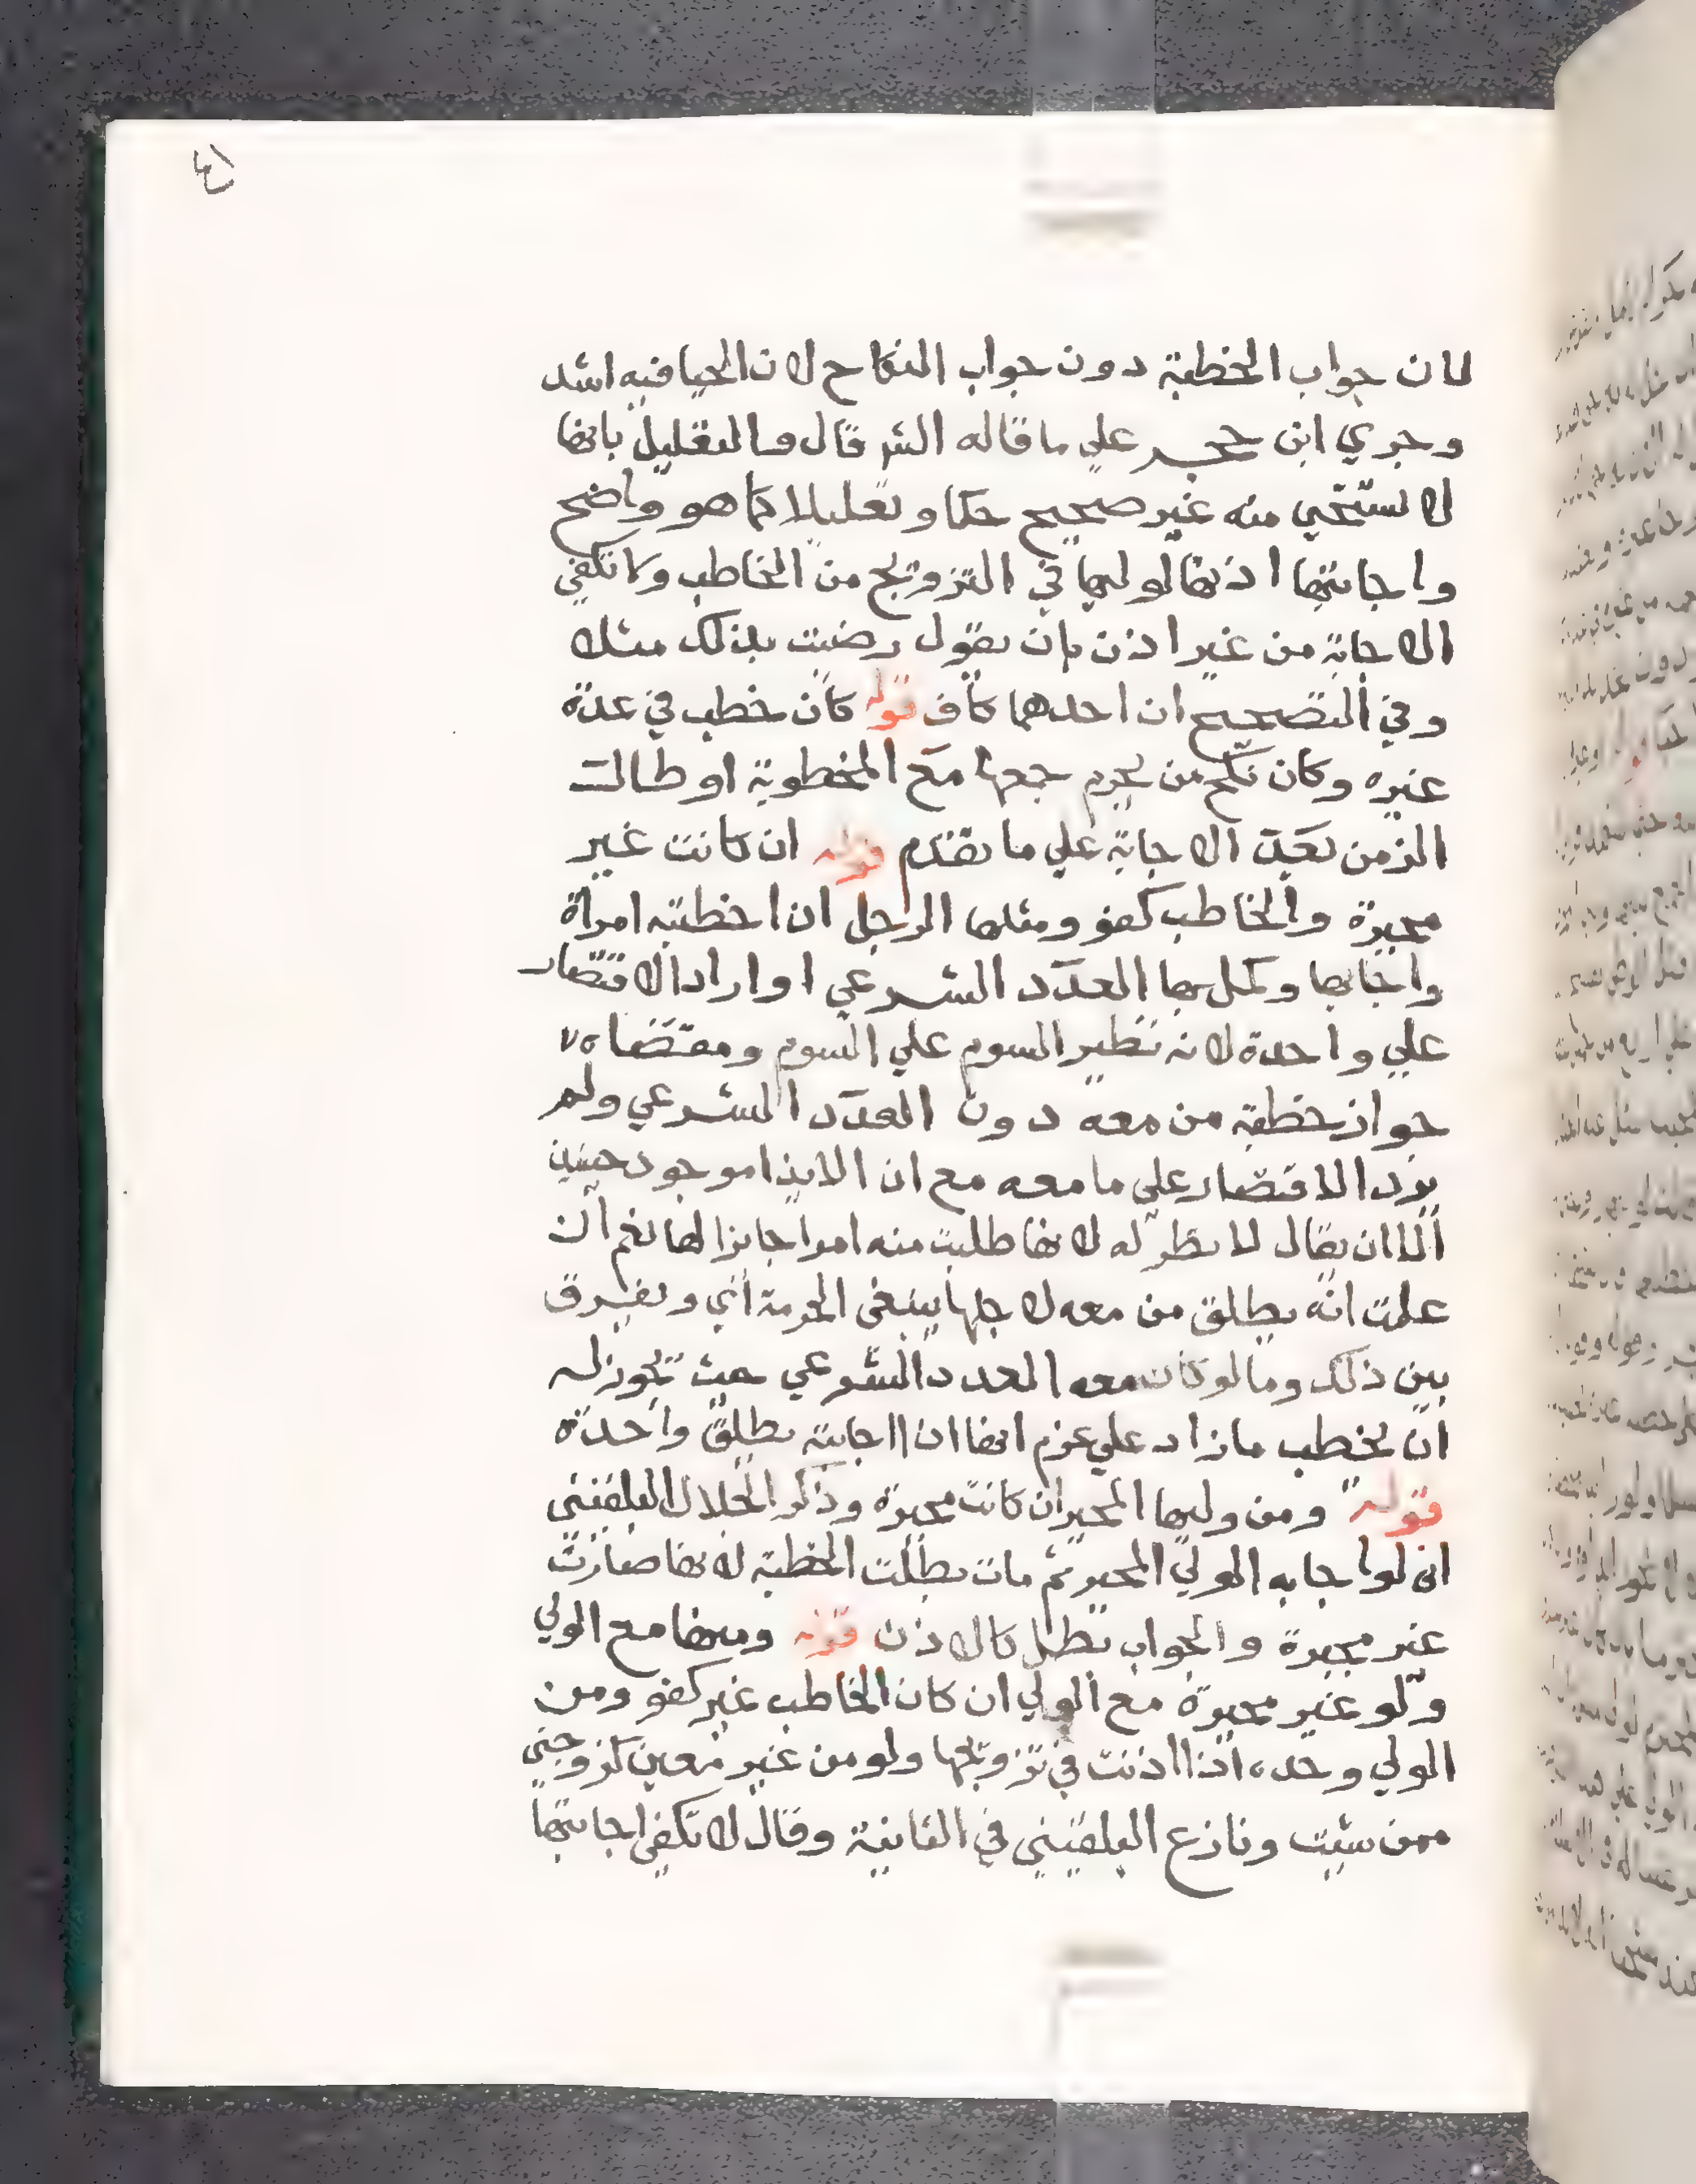 ٤١
لان جواب الخطبة دون جواب النكاح لان الحيا فيه اشد
وجري ابن حجر علي ما قاله الش قال والتعليل بانها
لا تستحي منه غير صحيح حكما وتعليلا كما هو واضح
واجابتها اذنها لوليها في التزويج من الخاطب ولا تكفي
الاجابة من غير اذن بان يقول رضيت بذلك مثلا
وفي التصحيح ان احدهما كاف قوله كان خطب في عدة
غيره وكان نكح من يحرم جمعها مع المخطوبة او طالت
الزمن بعد الاجابة علي ما تقدم قوله ان كانت غير
مجبرة والخاطب كفو ومثلها الرجل ان اخطبته امراة
واجابها وكمل بها العدد الشرعي او اراد الاقتصار
علي واحدة لانه نظير السوم علي السوم ومقتضاه
جواز خطبة من معه دون العدد الشرعي ولم
يرد الاقتصار علي ما معه مع ان الايذا موجود حينيذ
الا ان يقال لا نظر له لانها طلبت منه امرا جايزا لها نعم ان
علمت انه يطلق من معه لاجلها ينبغي الحرمة اي ويفرق
بين ذلك وما لو كان معه العدد الشرعي حيث يجوز له
ان يخطب ما زاد علي عزم انها ان اجابته يطلق واحدة
قوله ومن وليها المجبر ان كانت مجبرة وذكر الجلال البلقيني
انه لو اجابه الولي المجبر ثم مات بطلت الخطبة لانها صارت
غير مجبرة والجواب يبطل كالاذن قوله ومنها مع الولي
ولو غير مجبرة مع الولي ان كان الخاطب غير كفو ومن
الولي وحده اذا اذنت في تزويجها ولو من غير معين كزوجني
ممن شيت ونازع البلقيني في الثانية وقال لا تكفي اجابتها